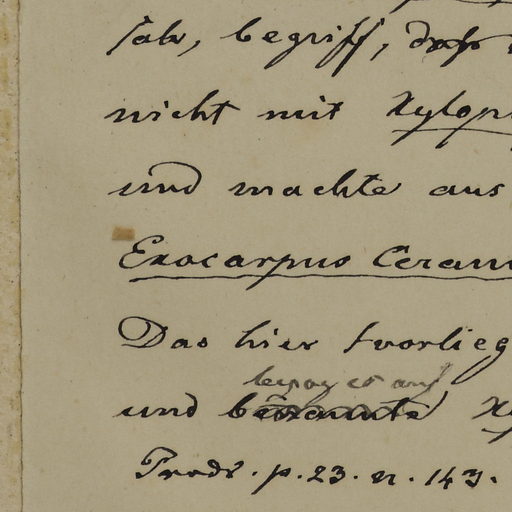 sah, begriff, daß
nicht mit Xylop
und machte aus
Exocarpus Ceram
Das hier vorlieg
bezog es auf
und benannte Xy
Prodr. p. 23. n. 143.